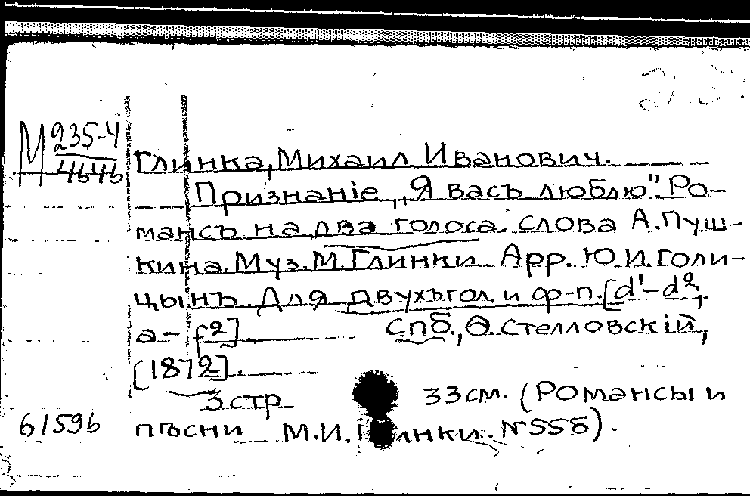 М 235-4
4646
Глинка, Михаил Иванович.
Признаніе „Я васъ люблю". Ро-
мансъ на два голоса. Слова А. Пуш-
кина. Муз. М. Глинки. Арр. Ю. И. Голи-
цынъ. Для двухъ гол. и ф-п. [d¹-d²,
a-f²]. Спб., Ѳ. Стелловскій,
[1872].
3 стр. 33 см. (Романсы и
пѣсни М. И. Глинки. №